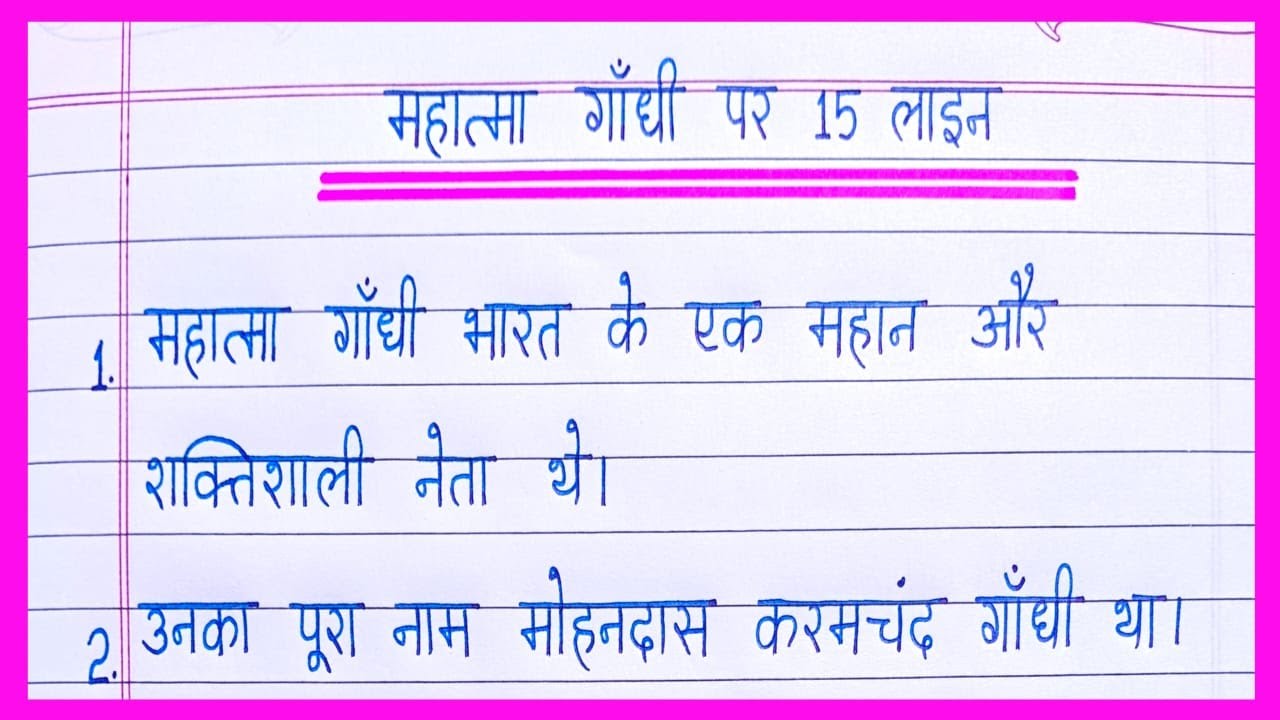 महात्मा गाँधी पर 15 लाइन
1. महात्मा गाँधी भारत के एक महान और
शक्तिशाली नेता थे।
2. उनका पूरा नाम मोहनदास करमचंद गाँधी था।